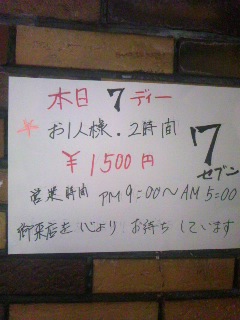 本日 7 ディー
* お1人様.2時間
¥1500円
7
セブン
営業時間 PM9:00〜AM5:00
御来店を心よりお待ちしています